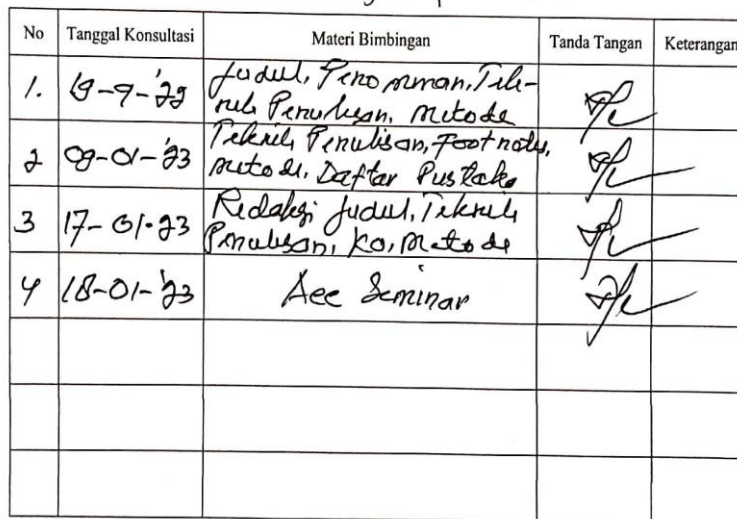 No Tanggal Konsultasi Materi Bimbingan Tanda Tangan Keterangan
1. 19-9-'22 Judul, Penomoran, Tek-
nik Penulisan, metode
2 09-01-'23 Teknik Penulisan, Footnotes,
metode, Daftar Pustaka
3 17-01-23 Redaksi Judul, Teknik
Penulisan, metode
4 18-01-'23 Acc Seminar